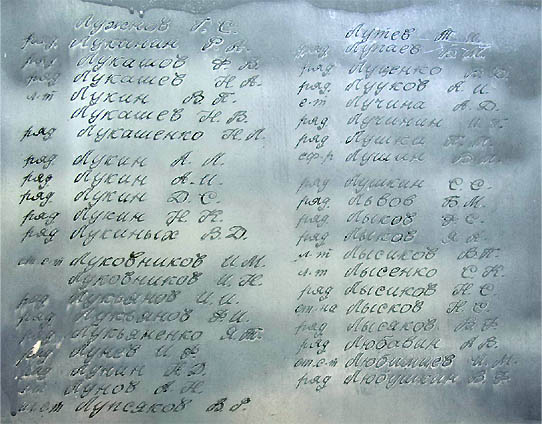 Лужнов Г. С.
ряд Лукашин
ряд Лукашов Ф. В.
ряд Лукашев Н. А.
л-т Лукин В. П.
Лукашев Н. В.
ряд Лукашенко Н. Л.
ряд Лукин А. Л.
ряд Лукин А. И.
ряд Лукин Д. С.
ряд Лукин Н. Н.
ряд Лукиных В. Д.
Луковников И. М.
Луковников И. Н.
ряд Лукьянов И. И.
ряд Лукьянов Ф. И.
ряд Лукьяненко Я. Т.
ряд Лунев И. Ф.
ряд Лунин А. Д.
Лунов А. Н.
Лупсяков В. Г.
Лутев
ряд Лутаев
ряд Луценко
ряд Луцков А. И.
с-т Лучина А. Д.
ряд Лучинин
ряд Лушка
Лушин
ряд Лушкин С. С.
ряд Львов Б. М.
ряд Лыков
ряд Лыков
л-т Лысиков В. П.
л-т Лысенко С. К.
ряд Лысиков Н. С.
Лысков Н. С.
ряд Лысяков В. Ф.
ряд Любавин А. В.
Любимцев И. М.
ряд Любушкин